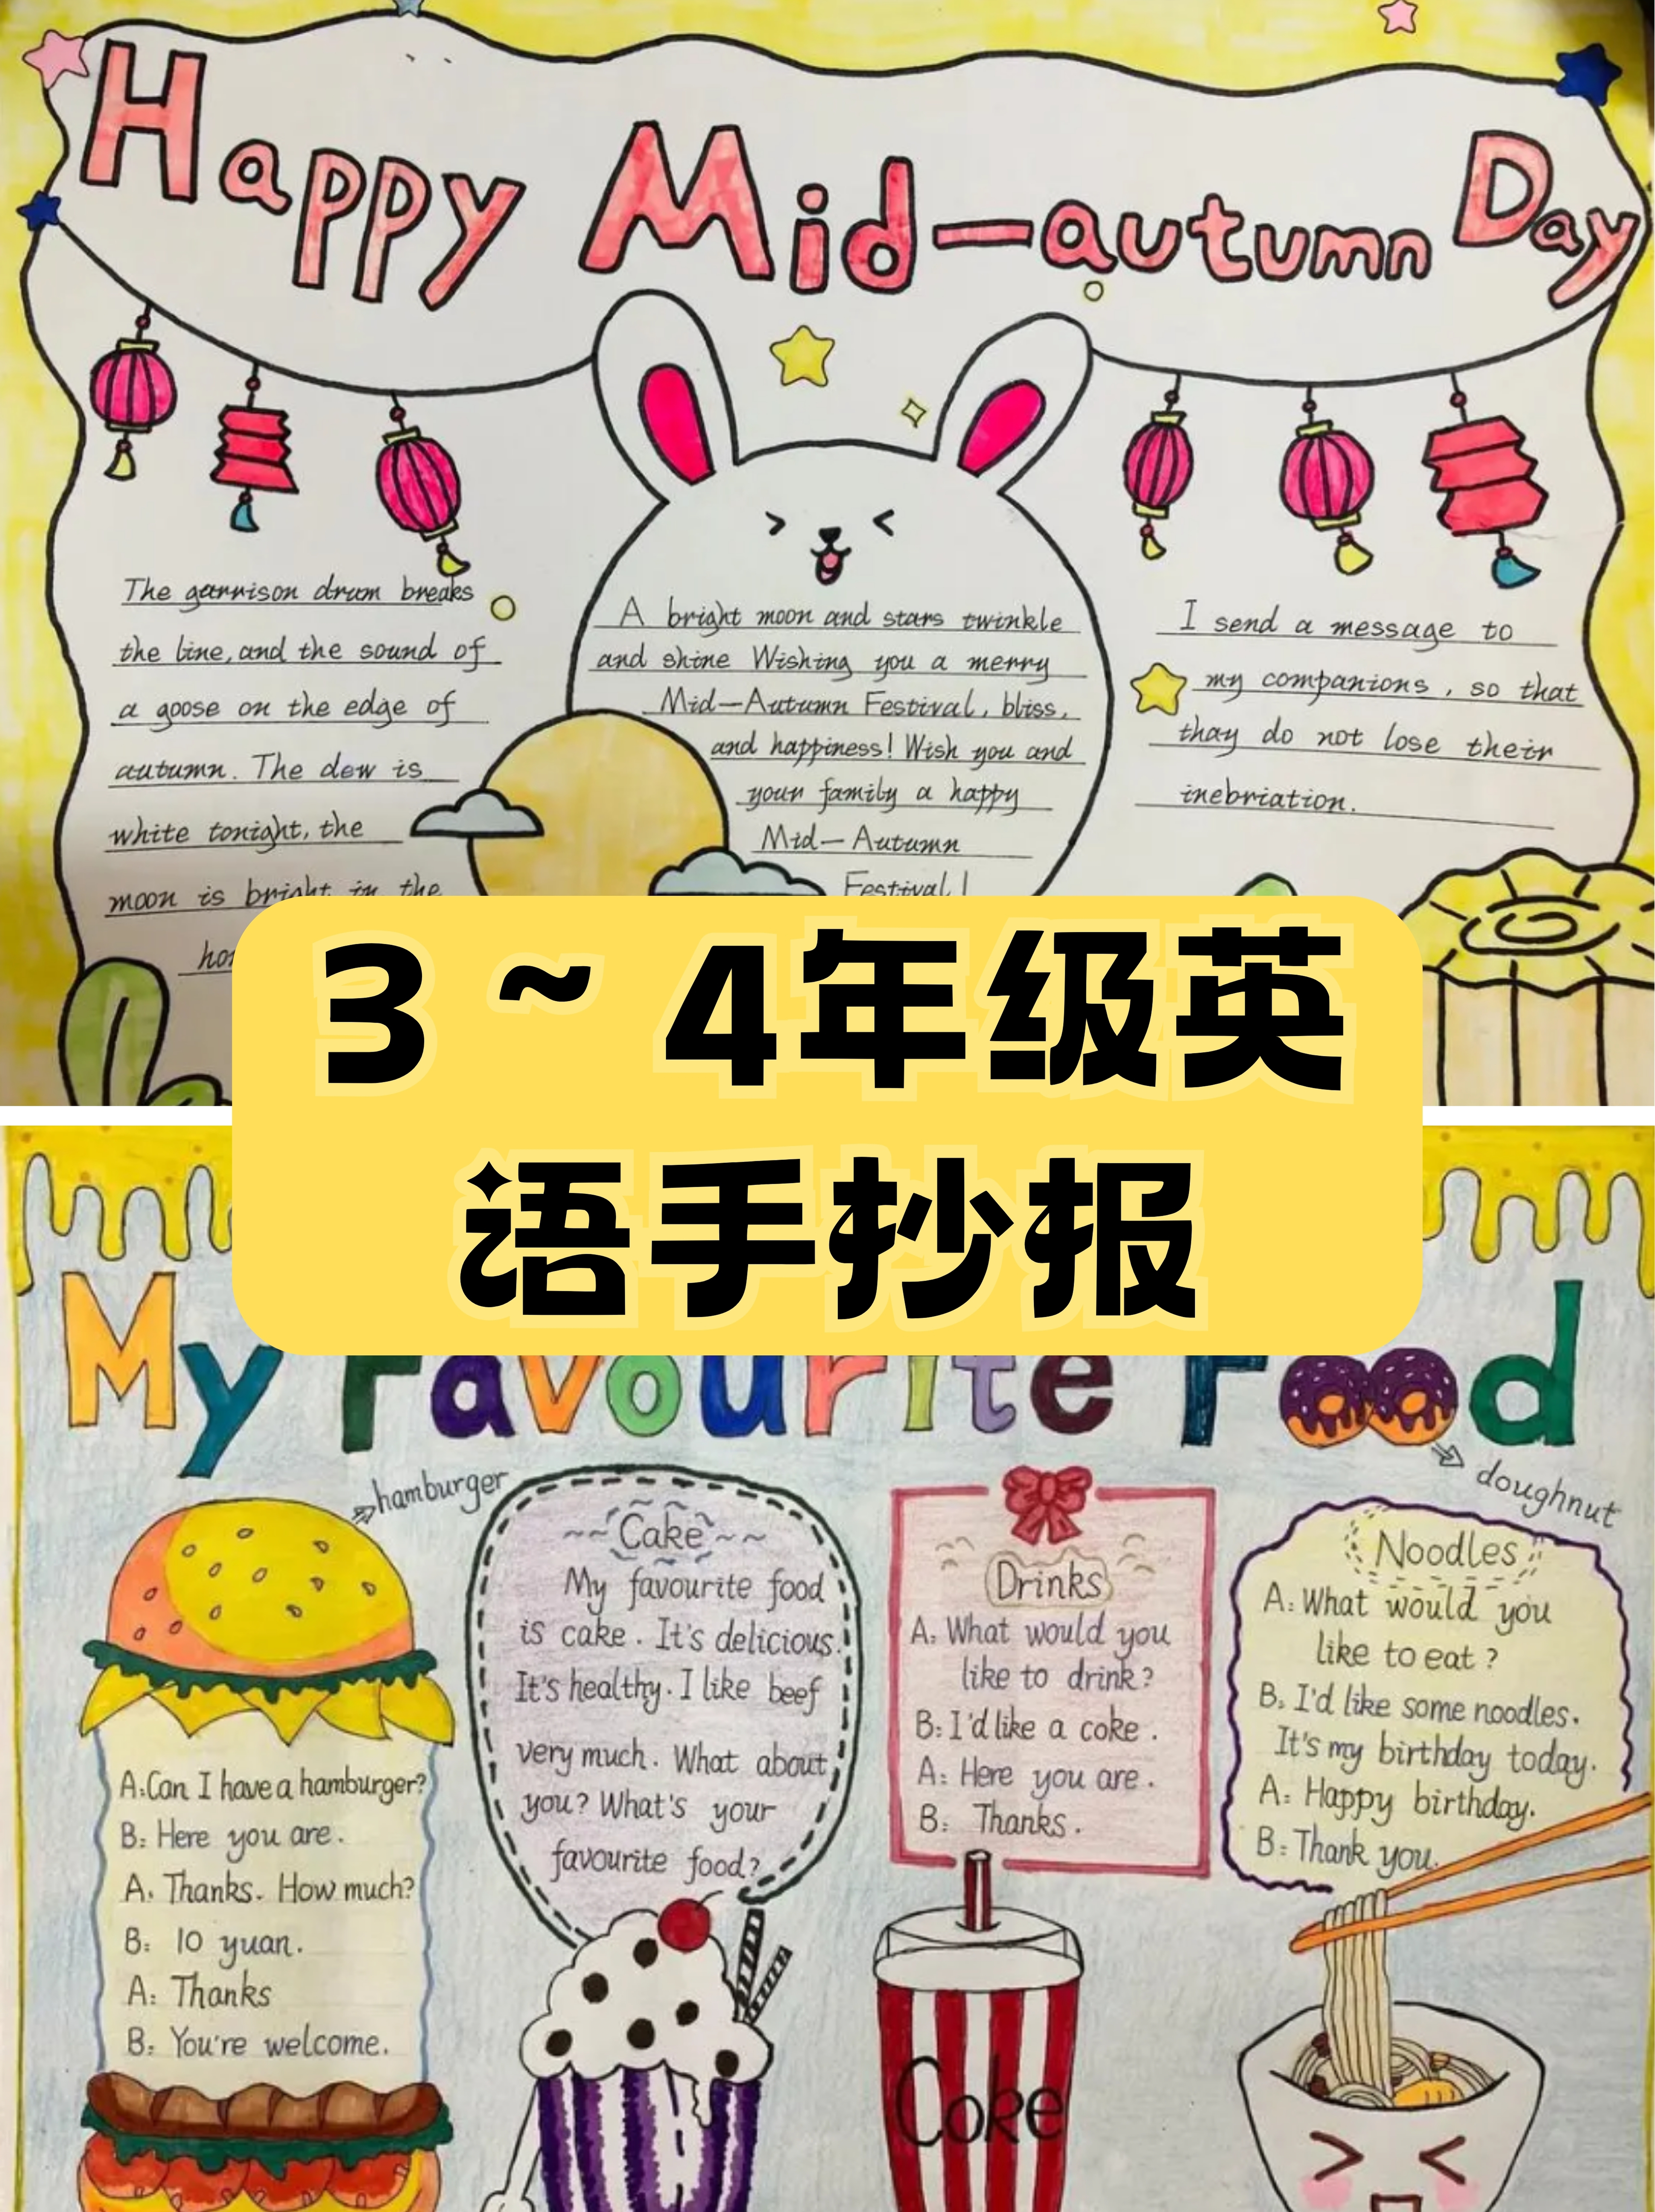 Happy Mid-autumn Day
The garrison drum breaks
the line, and the sound of
a goose on the edge of
autumn. The dew is
white tonight, the
moon is bright in the
A bright moon and stars twinkle
and shine Wishing you a merry
Mid-Autumn Festival, bliss,
and happiness! Wish you and
your family a happy
Mid-Autumn
Festival!
I send a message to
my companions, so that
thay do not lose their
inebriation.
3~4年级英
语手抄报
My Favourite Food
hamburger
doughnut
A:Can I have a hamburger?
B: Here you are.
A: Thanks. How much?
B: 10 yuan.
A: Thanks
B: You're welcome.
Cake
My favourite food
is cake. It's delicious.
It's healthy. I like beef
very much. What about
you? What's your
favourite food?
Drinks
A: What would you
like to drink?
B: I'd like a coke.
A: Here you are.
B: Thanks.
Coke
Noodles
A: What would you
like to eat?
B: I'd like some noodles.
It's my birthday today.
A: Happy birthday.
B: Thank you.